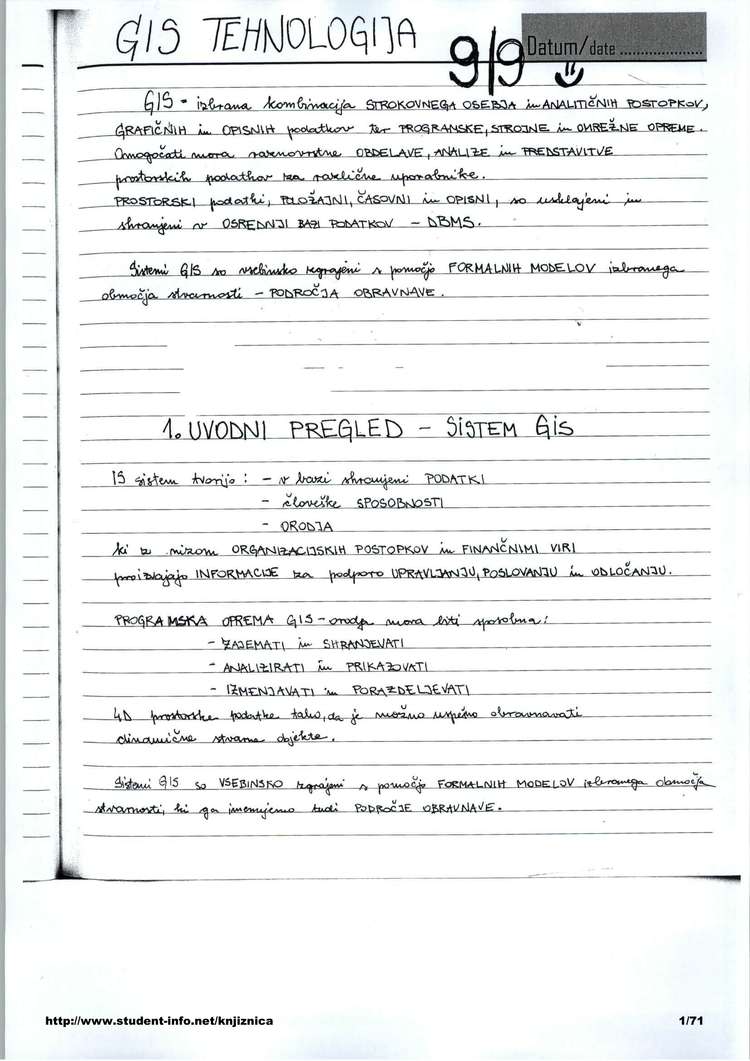 GIS TEHNOLOGIJA
9/9
Datum/date ....................
GIS - izbrana kombinacija STROKOVNEGA OSEBJA in ANALITIČNIH POSTOPKOV,
GRAFIČNIH in OPISNIH podatkov ter PROGRAMSKE, STROJNE in OMREŽNE OPREME.
Omogočati mora raznovrstne OBDELAVE, ANALIZE in PREDSTAVITVE
prostorskih podatkov za različne uporabnike.
PROSTORSKI podatki, POLOŽAJNI, ČASOVNI in OPISNI, so usklajeni in
shranjeni v OSREDNJI BAZI PODATKOV - DBMS.
Sistemi GIS so vsebinsko zgrajeni s pomočjo FORMALNIH MODELOV izbranega
območja stvarnosti - PODROČJA OBRAVNAVE.
1. UVODNI PREGLED - SISTEM GIS
IS sistem tvorijo: - v bazi shranjeni PODATKI
- človeške SPOSOBNOSTI
- ORODJA
ki z nizom ORGANIZACIJSKIH POSTOPKOV in FINANČNIMI VIRI
proizvajajo INFORMACIJE za podporo UPRAVLJANJU, POSLOVANJU in ODLOČANJU.
PROGRAMSKA OPREMA GIS - orodja mora biti sposobna:
- ZAJEMATI in SHRANJEVATI
- ANALIZIRATI in PRIKAZOVATI
- IZMENJAVATI in PORAZDELJEVATI
4D prostorske podatke tako, da je možno uspešno obravnavati
dinamične stvarne objekte.
Sistemi GIS so VSEBINSKO zgrajeni s pomočjo FORMALNIH MODELOV izbranega območja
stvarnosti, ki ga imenujemo tudi PODROČJE OBRAVNAVE.
http://www.student-info.net/knjiznica
1/71